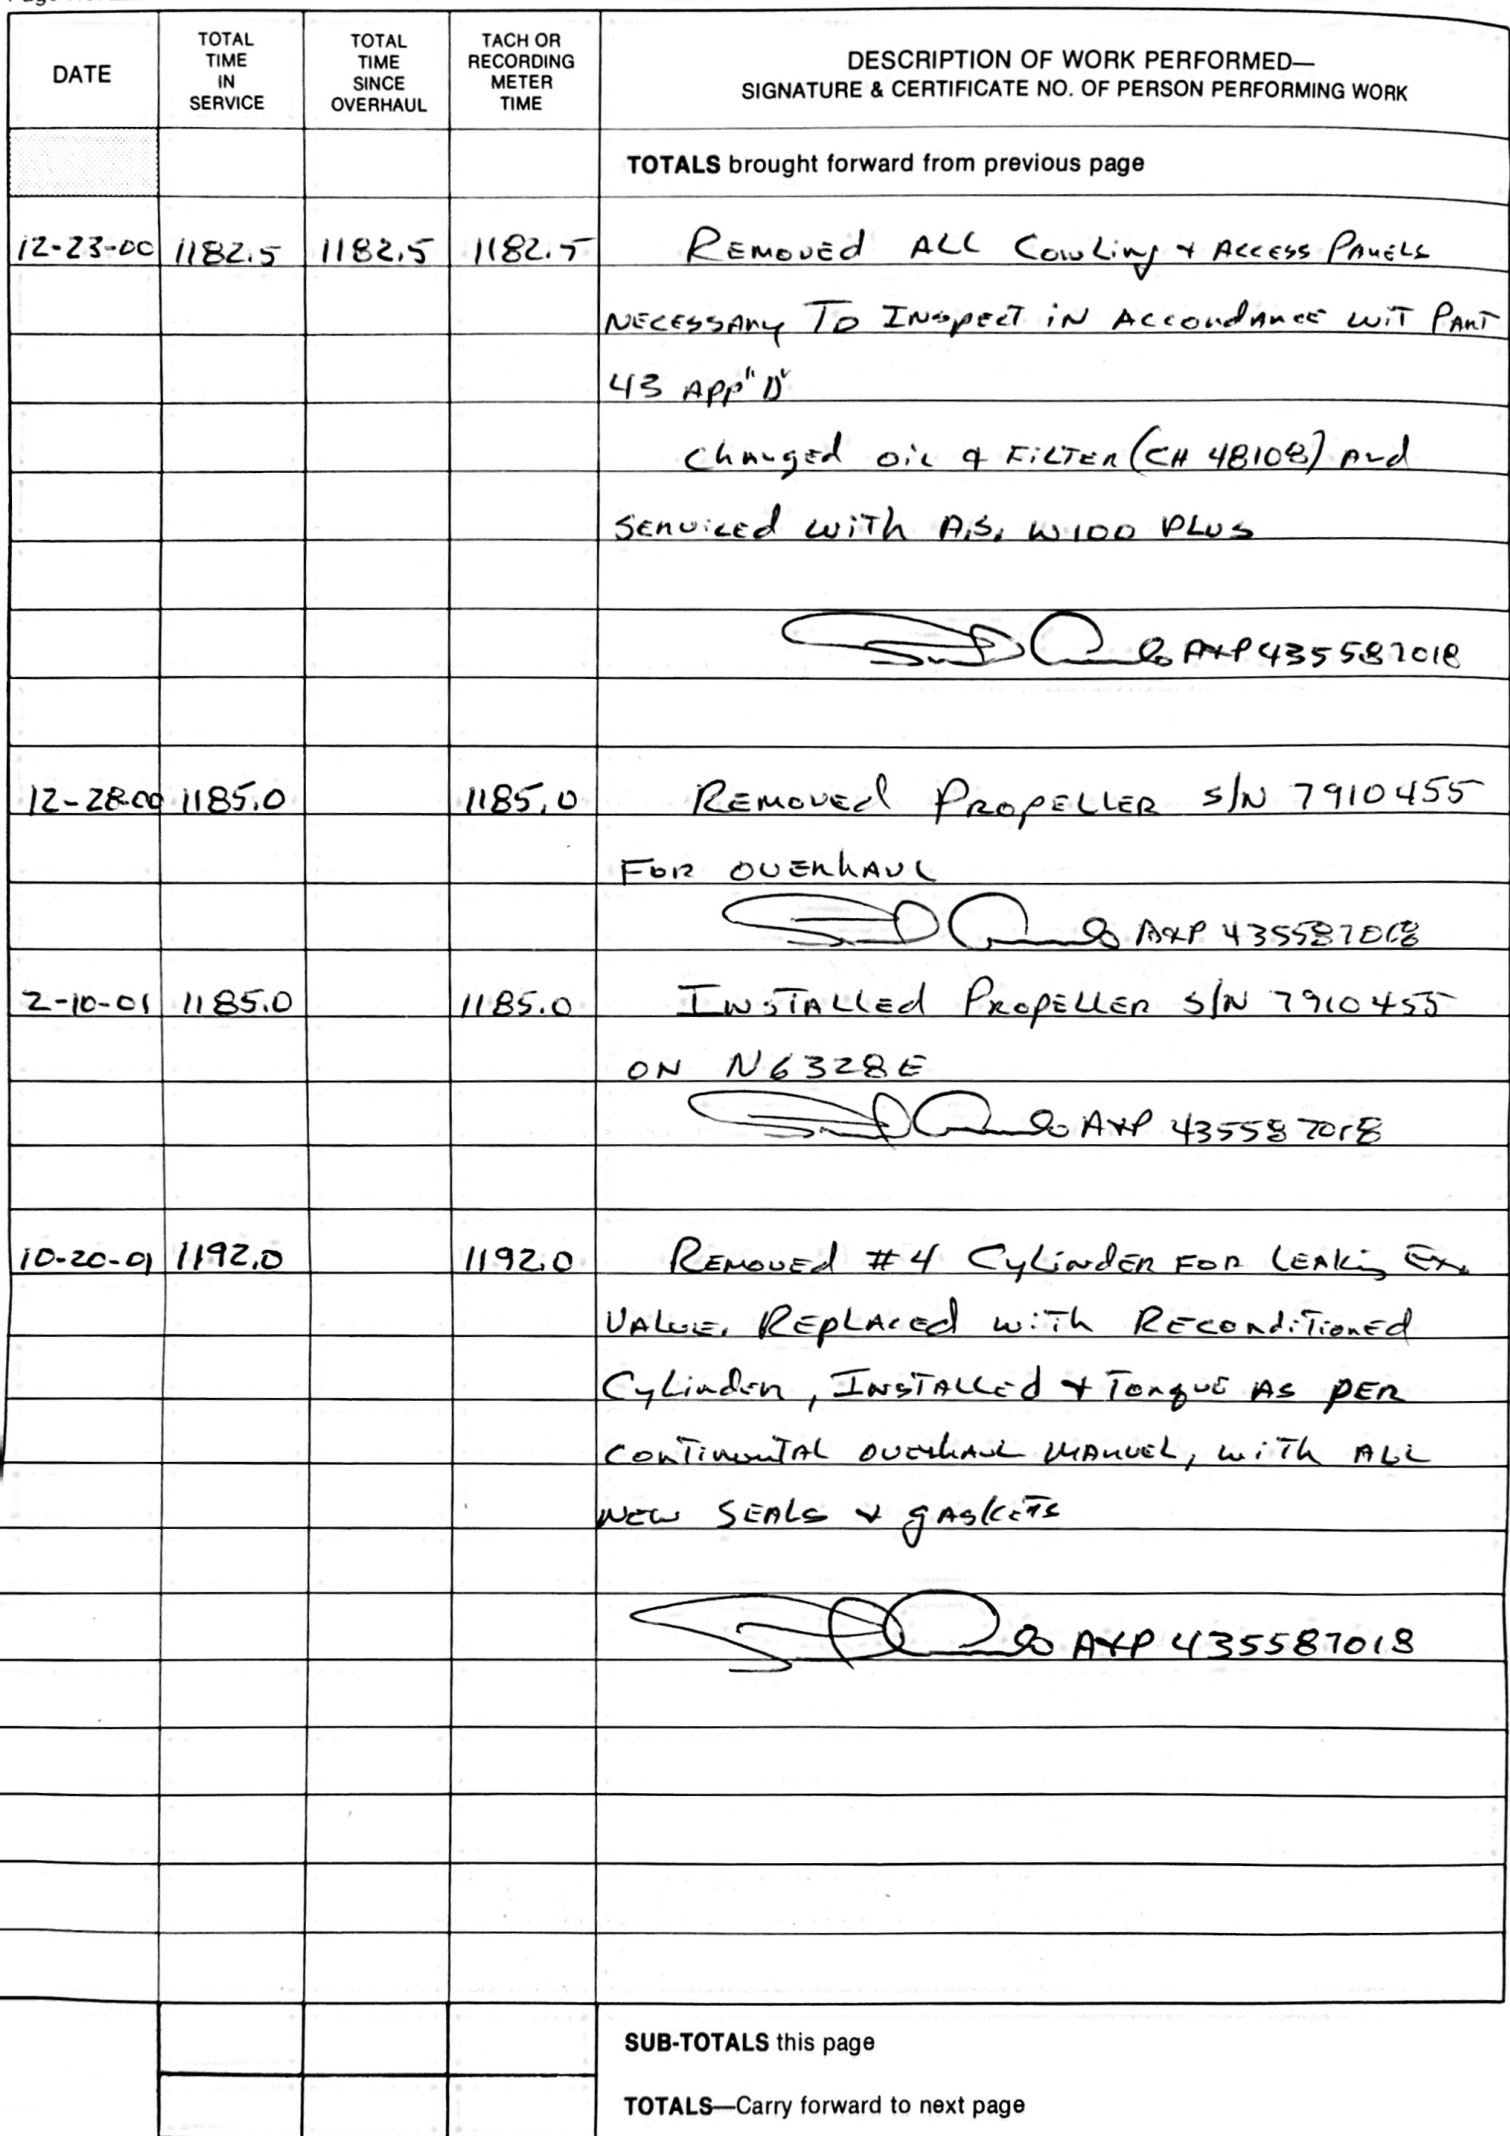 DATE
TOTAL
TIME
IN
SERVICE
TOTAL
TIME
SINCE
OVERHAUL
TACH OR
RECORDING
METER
TIME
DESCRIPTION OF WORK PERFORMED—
SIGNATURE & CERTIFICATE NO. OF PERSON PERFORMING WORK
TOTALS brought forward from previous page
12-23-00 1182.5 1182.5 1182.5 REMOVED ALL Cowling & ACCESS PANELS
NECESSARY TO INSPECT IN ACCORDANCE WIT PART
43 APP "D"
Changed oil & FILTER (CH 48108) And
SERVICED with A.S. W100 PLUS
A&P 435587018
12-28-00 1185.0 1185.0 REMOVED PROPELLER S/N 7910455
FOR OVERHAUL
A&P 435587018
2-10-01 1185.0 1185.0 INSTALLED PROPELLER S/N 7910455
ON N6328E
A&P 435587018
10-20-01 1192.0 1192.0 REMOVED #4 CYLINDER FOR LEAKing EX.
VALVE. REPLACED with RECONDITIONED
Cylinder, INSTALLED & Torque AS PER
CONTINENTAL OVERHAUL MANUEL, with ALL
NEW SEALS & gASKETS
A&P 435587018
SUB-TOTALS this page
TOTALS—Carry forward to next page